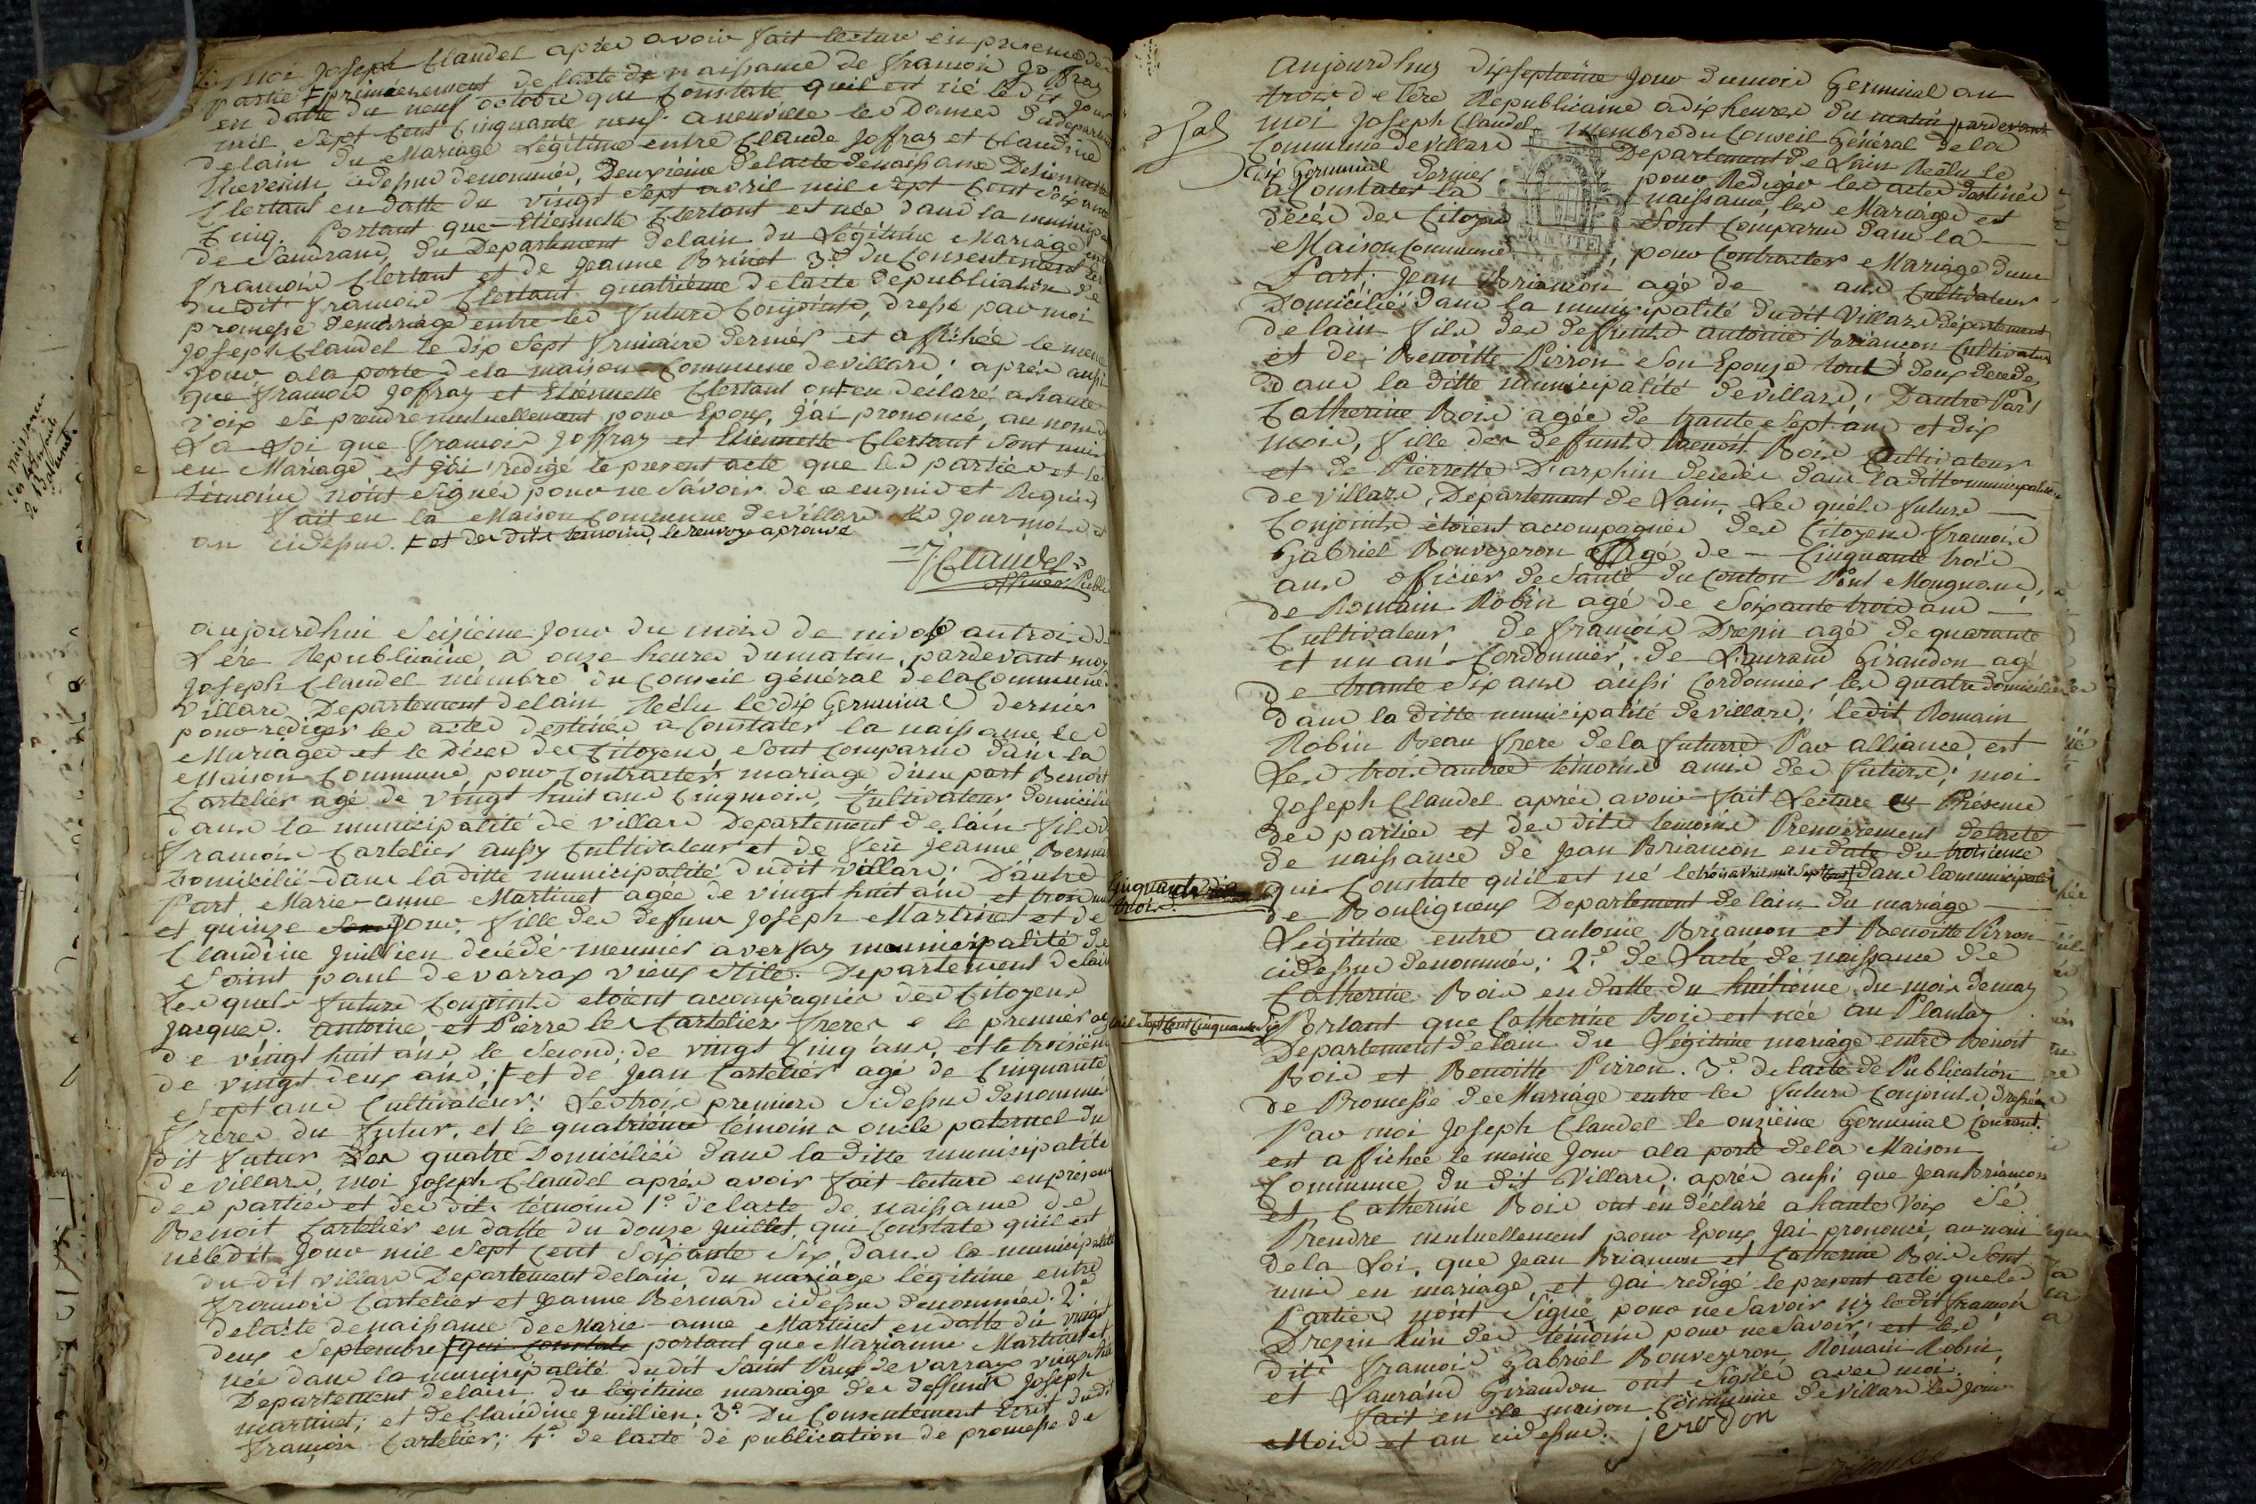 moi Joseph Claudel après avoir fait lecture en presence des
parties premièrement de lacte de naissance de francois Joffray
en datte du neuf octobre qui Constate quil est né le dit jour
mil sept Cent Cinquante neuf a neuville les Dames departement
delain du Mariage Légitime entre Claude Joffray et Claudine
cidessus denommés, Deuxième delacte denaissance Detiennette
Clertant en datte du vingt sept avril mil sept Cent soixante
Cinq. Portant que Etiennette Clertant est née dans la municipalité
de Sandrans, du Departement delain du Légitime Mariage entre
francois Clertant et de Jeanne Brinet 3.e du Consentement
du dit francois Clertant quatrième delacte depublication de
promesse demariage entre les futurs Conjoints, dressé par moi
Joseph Claudel le dix sept frimaire dernier et affichée le meme
Jour ala porte dela maison Commune devillars; après aussi
que francois Joffray et Etiennette Clertant ont eu declaré ahaute
voix se prendre mutuellement pour Epoux, j'ai prononcé, au nom de
La Loi que francois Joffray et Etiennette Clertant sont unis
en Mariage et j'ai rédigé le present acte que les parties et les
témoins n'ont signés pour ne Savoir de ce enquis et Requis
fait en la Maison Commune devillars les Jour mois et
an cidessus. et des dits temoins, le renvoye aprouvé
J Claudel
officier Public
aujourdhui seizième Jour du mois de nivose an trois de
L'ére Republicaine, a onze heures dumatin, pardevant moy
Joseph Claudel membre du Conseil général dela Commune
Villars Departement delain Réélu le dix Germinal dernier
pour rediger les actes destinés a Constater la naissance, les
Mariages et le Décès des Citoyens, sont Comparus dans la
Maison Commune, pour Contracter mariage d'une part Benoit
Cartelier agé de vingt huit ans Cinq mois, Cultivateur domicilié
dans la municipalité de villars Departement de lain fils de
francois Cartelier aussy Cultivateur et de feu Jeanne Bernard
Domicilié dans laditte municipalité dudit villars; D'autre
Part Marie-anne Martinet agée de vingt huit ans et trois mois
et quinze Jour, fille des deffuns Joseph Martinet et de
Claudine Juillien decédé meunier a versay municipalité de
Saint paul de varrax vieux stile. Departement delain
Lesquels futurs Conjoints etoient accompagnés des Citoyens
Jacques. antoine et Pierre les Cartelier freres le premier agé
de vingt huit ans, le second, de vingt Cinq ans, et le troisieme
de vingt deux ans; et de Jean Cartelier agé de Cinquante
sept ans Cultivateur. Les trois premiers Cidessus denommés
freres du futur, et le quatrième témoin oncle paternel du
dit futur Les quatre Domiciliés dans la ditte municipalité
de villars, moi Joseph Claudel après avoir fait lecture en presence
des parties et des dits témoins 1.o delacte de naissance de
Benoit Cartelier en datte du douze Juillet, qui Constate quil est
né ledit Jour mil sept Cent soixante six, dans la municipalité
du dit villars Departement delain, du mariage légitime entre
francois Cartelier et Jeanne Bernard cidessus denommés. 2.o
delacte denaissance de Marie-anne Martinet endatte du vingt
deux septembre qui constate portant que Marianne Martinet est
née dans la municipalité dudit Saint Paul de varrax vieux stile
Departement delain du légitime mariage des deffunts Joseph
Martinet, et de Claudine Juillien. 3.o Du Consentement Ecrit dudit
francois Cartelier; 4.o de lacte de publication de promesse de
aujourdhuy dixseptième Jour dumois Germinal an
trois de lère Republicaine adix heures du matin pardevant
moi Joseph Claudel Membre du Conseil Général de la
Commune devillars Departement de Lain Réélu le
dix Germinal dernier pour Rediger les actes destinés
a Constater la naissance, les Mariages et
décés des Citoyens sont Comparus dans la
Maison Commune, pour Contracter Mariage dune
Part. Jean Briancon agé de ans Cultivateur
Domicilié dans la municipalité dudit Villars département
delain fils des deffunts antoine Briancon Cultivateur
et de Benoitte Pirron son Epouse tout deux decedés
dans la ditte municipalité devillars; Dautre Part
Catherine Bois agée de trante sept ans et dix
mois, fille des deffunts Benoit Bois Cultivateur
et de Pierrette Darphin decedés dans laditte municipalité
de villars, Departement de Lain, Lesquels futurs
Conjoints étoient accompagnés des Citoyens francois
Gabriel Bouvezeron agé de Cinquante trois
ans officier de Santé du Conton
de Romain Robin agé de Soixante trois ans
Cultivateur de francois Drepin agé de quarante
et un an Cordonnier, de Laurand Girandon agé
de trante six ans aussi Cordonnier les quatre domiciliés
dans la ditte municipalité devillars; ledit Romain
Robin Beau frere dela futurre Par alliance, est
Les trois autres temoins amis des futurs; moi
Joseph Claudel après avoir fait Lecture en Présence
des parties et des dits temoins Premièrement delacte
de naissance de Jean Briancon endate du troisieme
qui Constate quil est né le trois avril mil Sept Cent dans la municipalité
Cinquante
trois.
de Bouligneux Departement delain du mariage
Légitime entre antoine Briancon et Benoitte Pirron
cidessus denommés; 2.o de Lacte de naissance de
Catherine Bois en datte du huitième du mois demay
mil Sept Cent Cinquante Six
Portant que Catherine Bois est née au Plantay
Departement delain du Légitime mariage entre Benoit
Bois et Benoitte Pirron. 3.o delacte de Publication
de Promesse de Mariage entre les futurs Conjoints Dressée
Par moi Joseph Claudel le onzième Germinal Courant.
est affichée le meme Jour ala porte dela Maison
Commune du dit Villars; après aussi que Jean Briancon
et Catherine Bois ont en déclaré a haute Voix Se
Prendre mutuellement pour Epoux Jai prononcé, au nom
dela Loi, que Jean Briancon et Catherine Bois sont
unis en mariage, et Jai redigé le present acte que les
Parties n'ont Signé pour ne Savoir n'y ledit francois
Drepin l'un des témoins pour ne Savoir; est les
dits francois Gabriel Bouvezeron, Romain Robin,
et Laurand Girandon ont Signés avec moi.
fait en la maison Commune de Villars les Jour
Mois et an cidessus.
jerodon